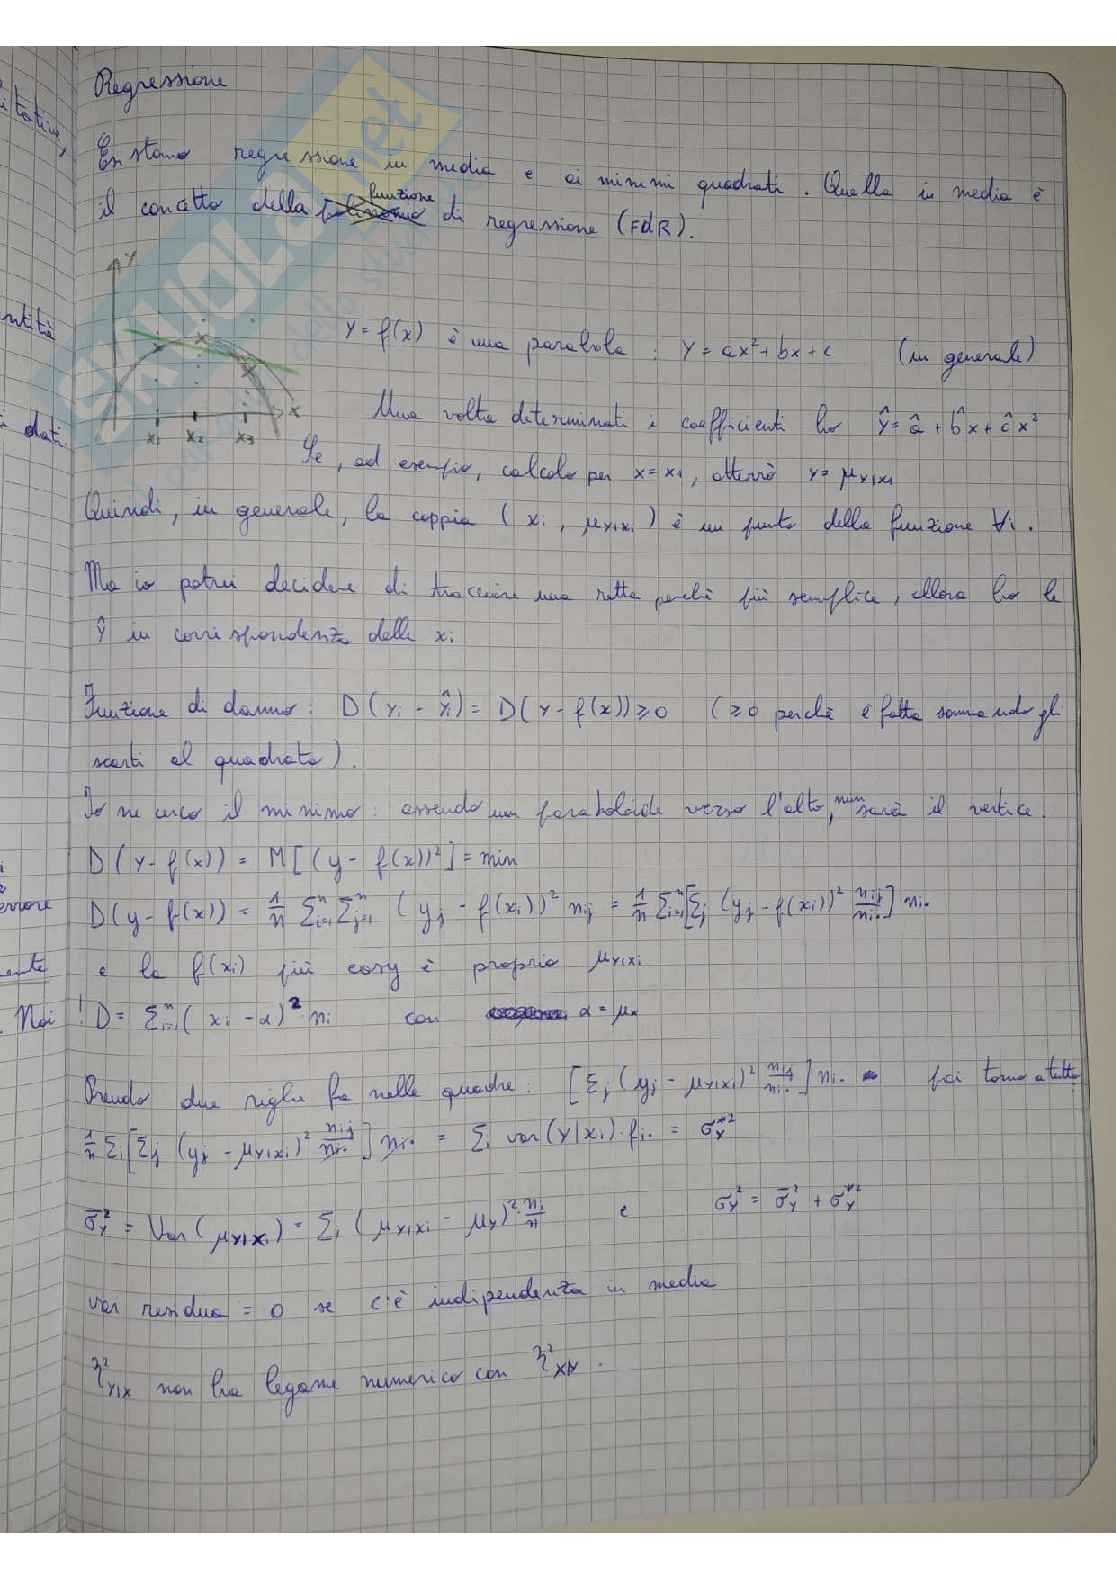 Regressione
Esistono regressione in media e ai minimi quadrati. Quella in media è
funzione
il concetto della polinomio di regressione (FdR).
Y
Y = f(x) è una parabola: Y = ax² + bx + c (in generale)
X
x₁ x₂ x₃
Una volta determinati i coefficienti ho Ŷ = â + b̂x + ĉx²
Se, ad esempio, calcolo per x = x₁, otterrò Y = μY|x₁
Quindi, in generale, la coppia (xᵢ, μY|xᵢ) è un punto della funzione ∀i.
Ma io potrei decidere di tracciare una retta perché più semplice, allora ho le
Ŷ in corrispondenza delle xᵢ
Funzione di danno: D(Yᵢ - Ŷᵢ) = D(Y - f(x)) ≥ 0 (≥ 0 perché è fatta sommando gli
scarti al quadrato).
Io ne cerco il minimo: essendo un paraboloide verso l'alto, min sarà il vertice.
D(Y - f(x)) = M[(y - f(x))²] = min
D(y - f(x)) = 1/n Σᵢ₌₁ⁿ Σⱼ₌₁ⁿ (yⱼ - f(xᵢ))² nᵢⱼ = 1/n Σᵢ₌₁ⁿ [Σⱼ (yⱼ - f(xᵢ))² nᵢⱼ/nᵢ.] nᵢ.
e la f(xᵢ) più easy è proprio μY|xᵢ
! D = Σᵢ₌₁ⁿ (xᵢ - α)² · nᵢ con α = μₓ
Prendo due righe fa nelle quadre: [Σⱼ (yⱼ - μY|xᵢ)² nᵢⱼ/nᵢ.] nᵢ. poi torno a tutto
1/n Σᵢ [Σⱼ (yⱼ - μY|xᵢ)² nᵢⱼ/nᵢ.] nᵢ. = Σᵢ var(Y|xᵢ) · fᵢ. = σY*²
σ̄Y² = Var(μY|xᵢ) = Σᵢ (μY|xᵢ - μY)² · nᵢ/n e σY² = σ̄Y² + σY*²
var residua = 0 se c'è indipendenza in media
η²Y|X non ha legame numerico con η²X|Y.
itative,
ntità
dati.
errore
ente
. Noi
SKUOLA.net